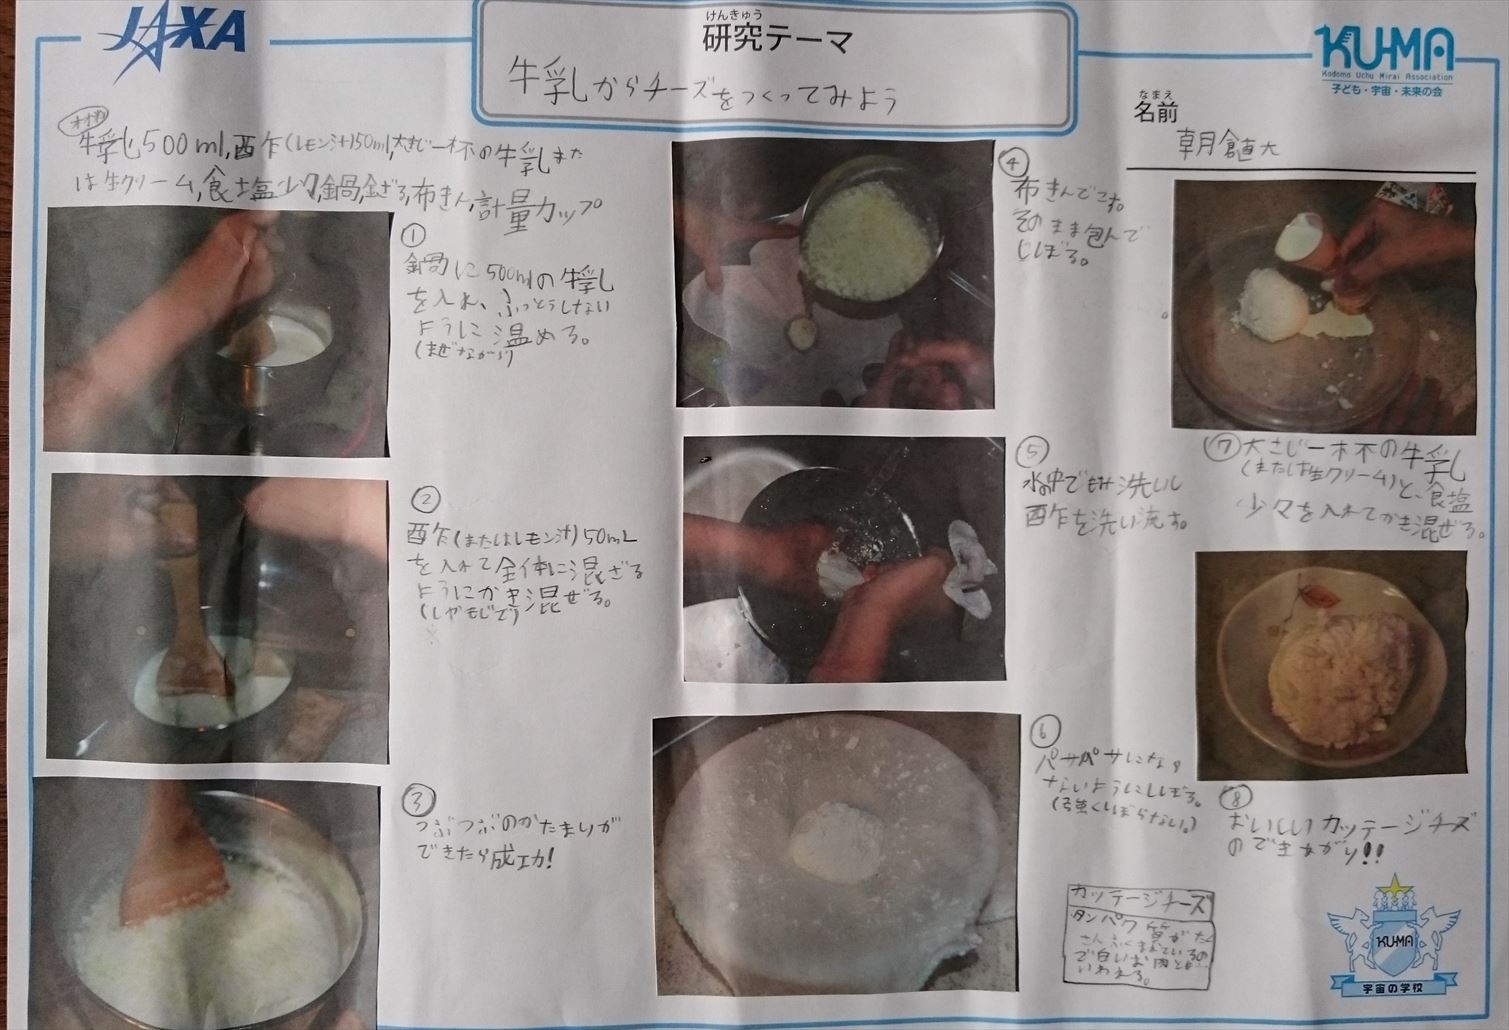 JAXA
けんきゅう
研究テーマ
牛乳からチーズをつくってみよう
KU-MA
Kodomo Uchu Mirai Association
子ども・宇宙・未来の会
なまえ
名前
材料
牛乳500ml,酢(レモン汁)50ml,大さじ一杯の牛乳また
は生クリーム,食塩少々,鍋,金ざる,布きん,計量カップ
①
鍋に500mlの牛乳
を入れ、ふっとうしない
ように温める。
(まぜながら)
②
酢(またはレモン汁)50mL
を入れて全体に混ざる
ようにかき混ぜる。
(しゃもじで)
③
つぶつぶのかたまりが
できたら成功!
④
布きんでこす。
そのまま包んで
しぼる。
⑤
水の中でもみ洗いし
酢を洗い流す。
⑥
パサパサになら
ないようにしぼる。
(強くしぼらない。)
⑦大さじ一杯の牛乳
(または生クリーム)と、食塩
少々を入れてかき混ぜる。
⑧
おいしいカッテージチーズ
のできあがり!!
カッテージチーズ
タンパク質がたく
さんふくまれているの
で白いお肉と
いわれる。
KU-MA
宇宙の学校